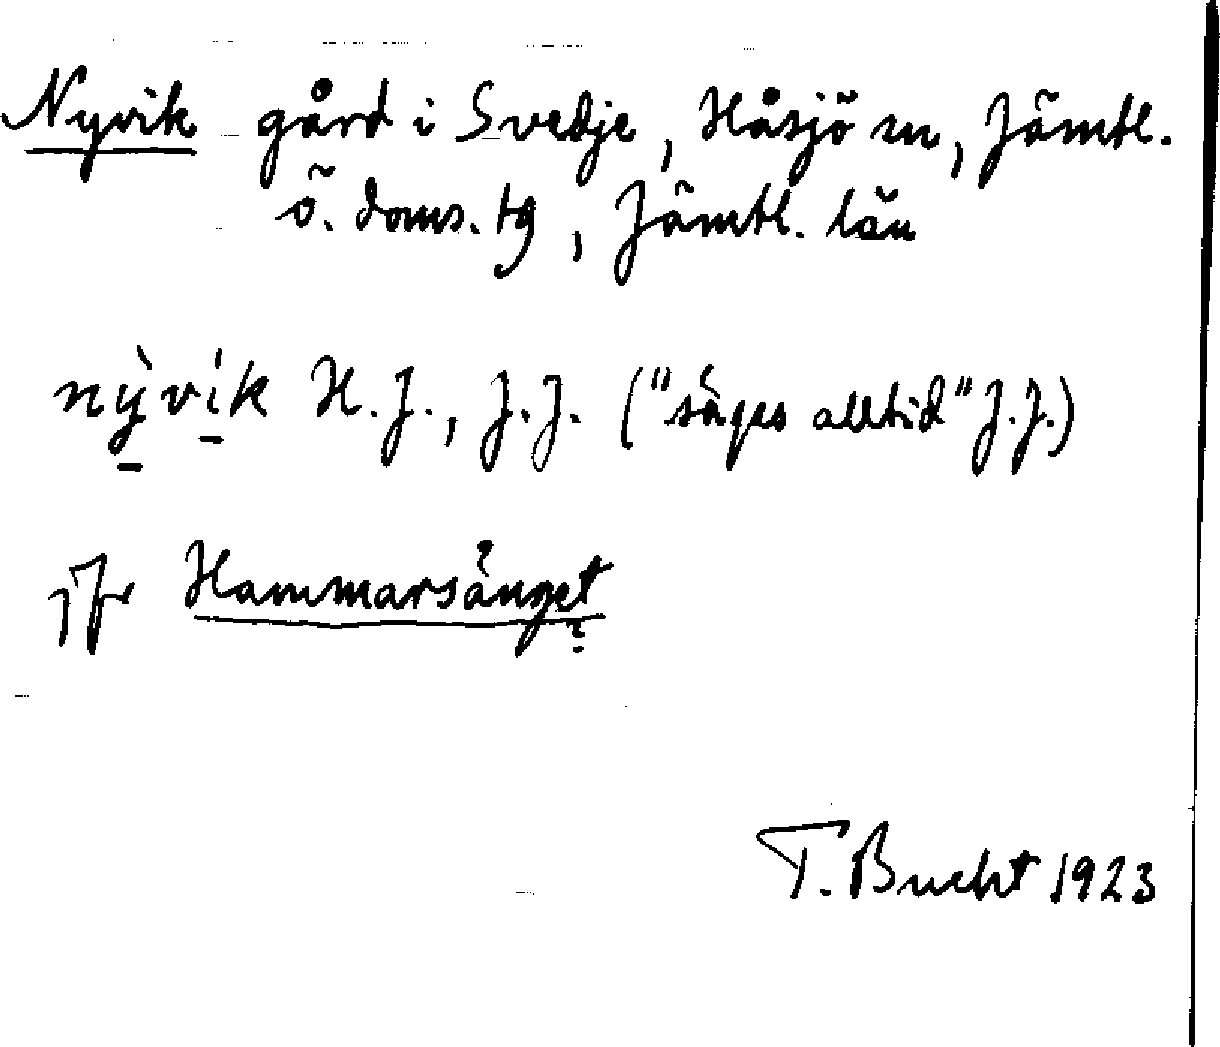 Nyvik gård i Svedje, Håsjö sn, Jämtl.
ö. doms. tg, Jämtl. län
nỳ̠ví̠k H. J., J. J. ("säges alltid" J. J.)
jfr Hammarsänget
T. Bucht 1923